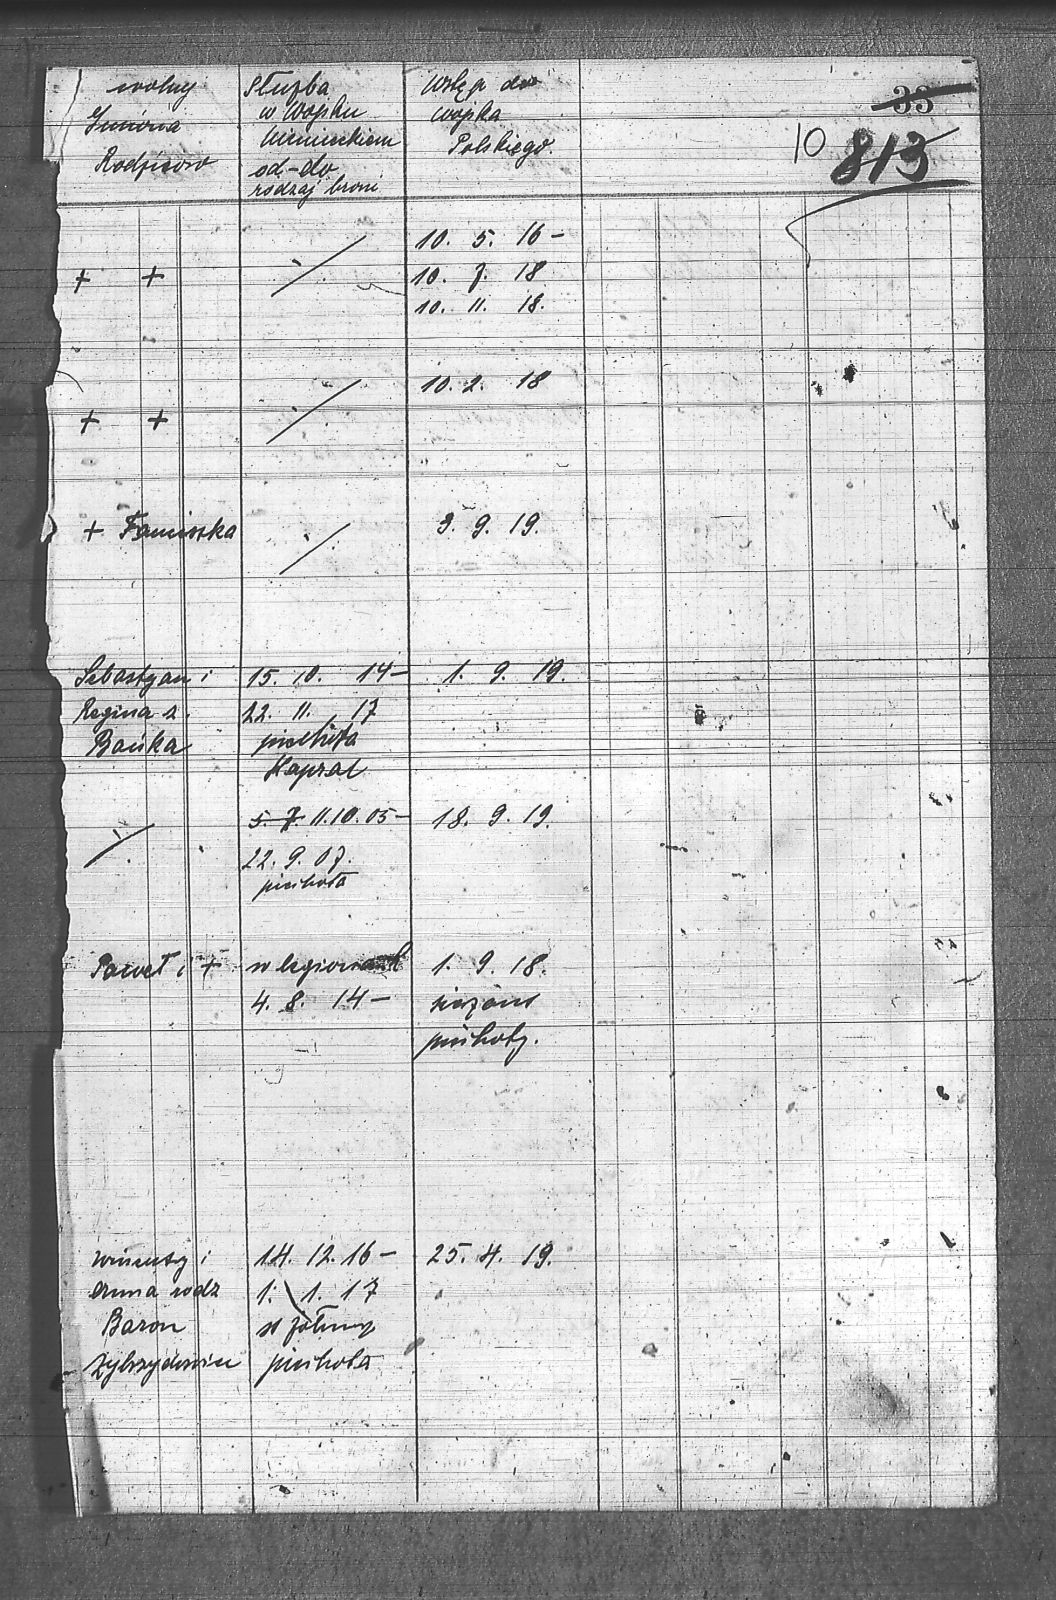 wolny
Imiona
Rodziców
Służba
w Wojsku
Niemieckiem
od-do
rodzaj broni
Wstęp do
wojska
Polskiego.
33
10 813
+ + ·/. 10. 5. 16 -
10. 7. 18
10. 11. 18.
+ + ·/. 10. 2. 18
+ Franciszka ·/. 3. 9. 19.
Sebastyan i 15. 10. 14 - 1. 9. 19.
Regina z. 22. 11. 17
Bańka piechota
Kapral
·/. 5. 7. 11.10.05 - 18. 9. 19.
22. 9. 07.
piechota
Paweł i + w legionach 1. 9. 18.
4. 8. 14 - sierżant
piechoty.
Wincenty i 14. 12. 16 - 25. 4. 19.
Anna rodz 1. 1. 17
Baron st żołnierz
piechota